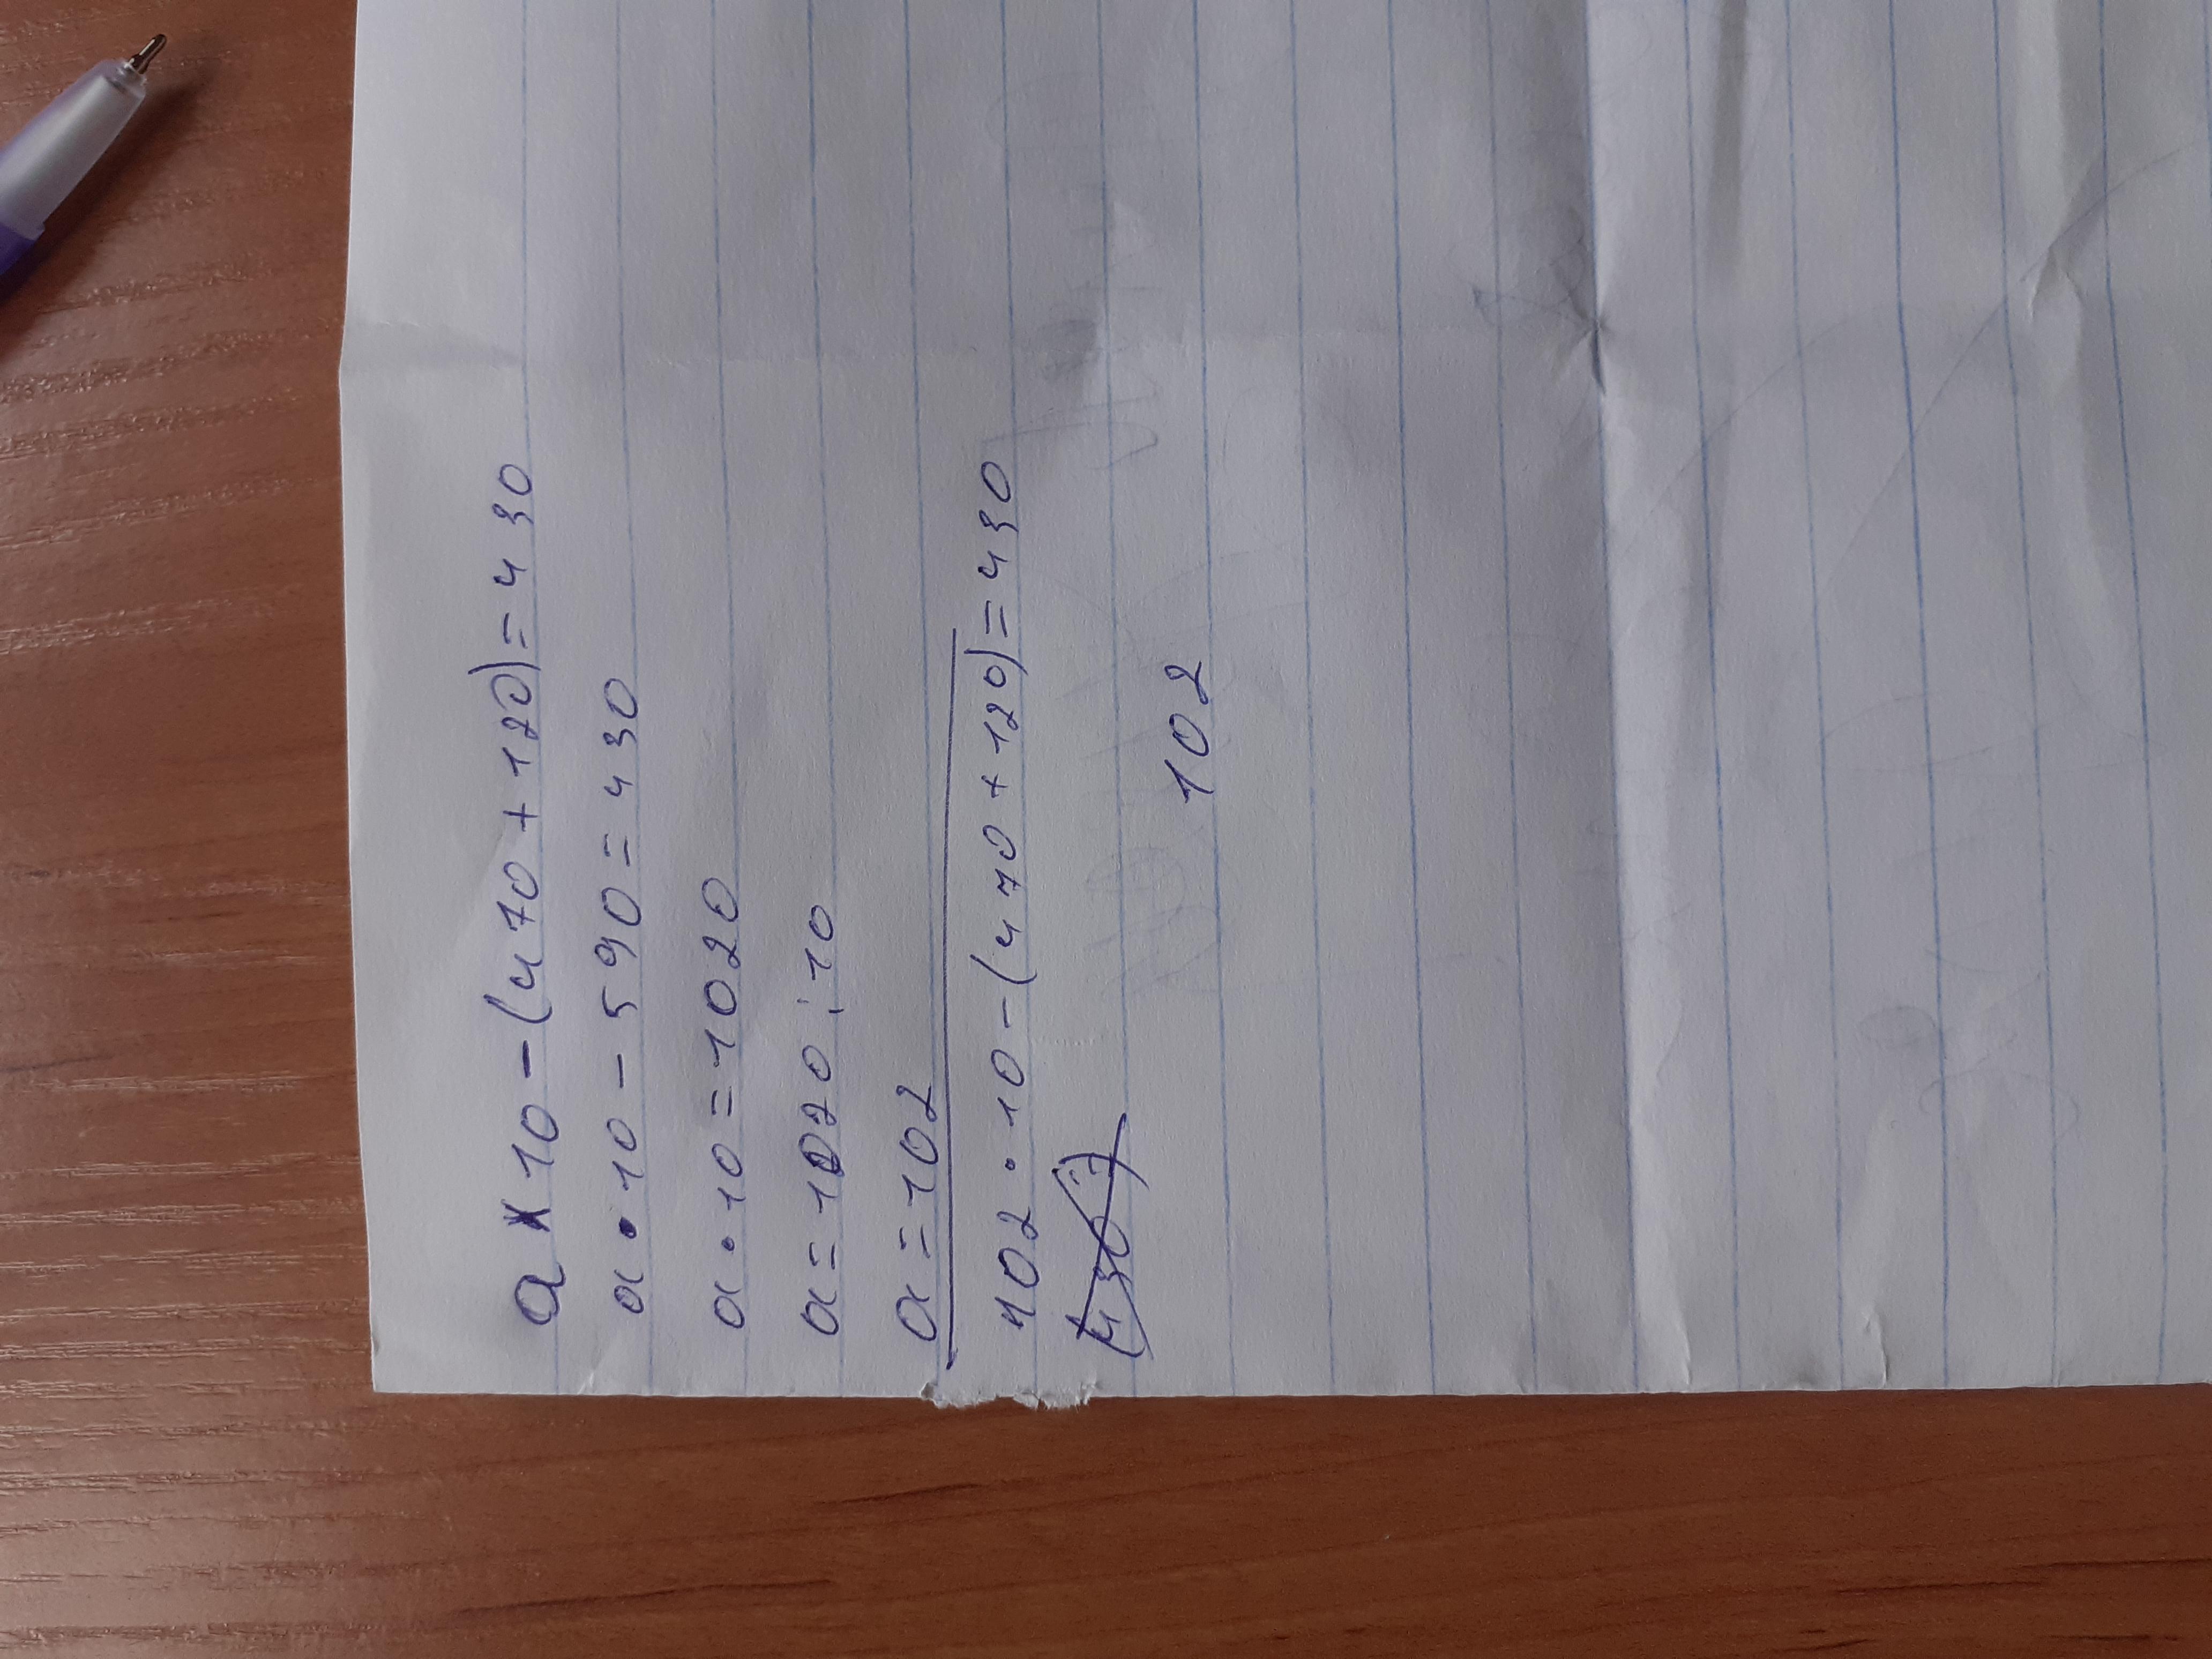 a x 10 - (470 + 120) = 430
a • 10 - 590 = 430
a • 10 = 1020
a = 1020 : 10
a = 102
102 • 10 - (470 + 120) = 430
102